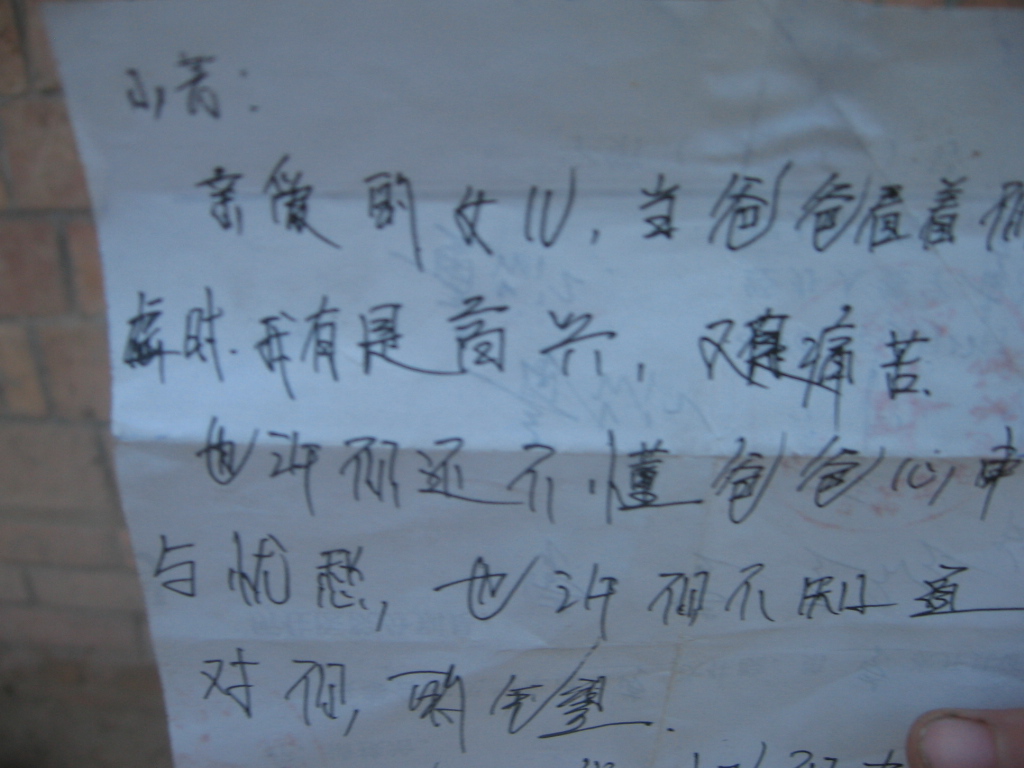 小菁：
亲爱的女儿，当爸爸看着你
时.我有是高兴，又是痛苦.
也许你还不懂爸爸心中
与忧愁，也许你不知道
对你，的企望.